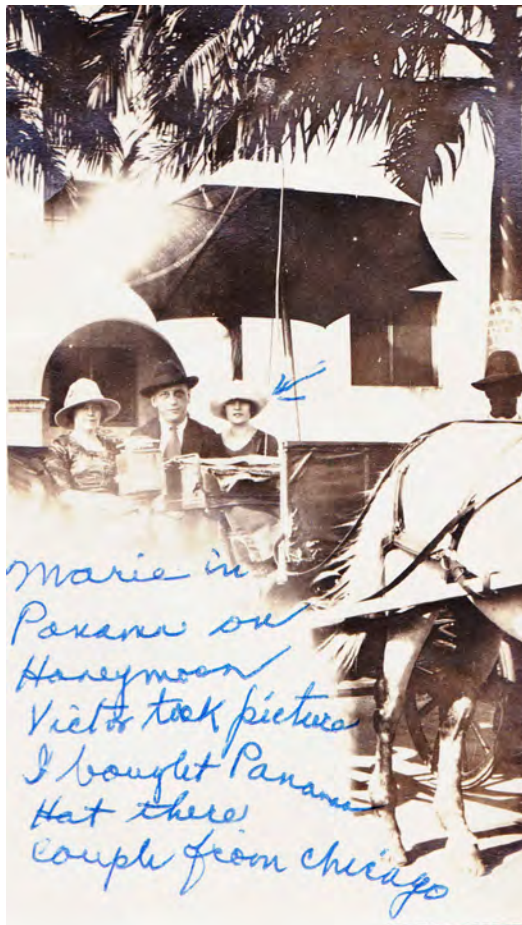 Marie in
Panama on
Honeymoon
Victor took picture
I bought Panama
Hat there
couple from Chicago